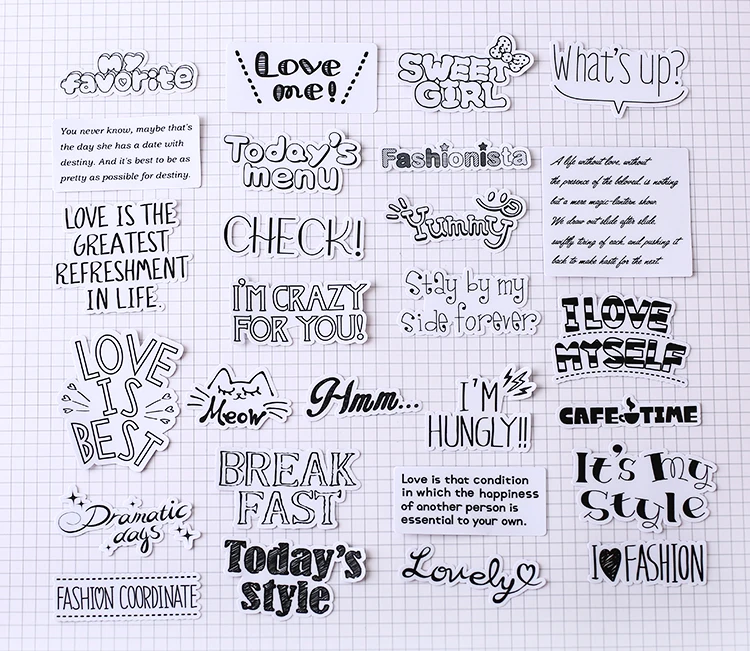 My
favorite
Love
me!
SWEET
GIRL
What's up?
You never know, maybe that's
the day she has a date with
destiny. And it's best to be as
pretty as possible for destiny.
Today's
menu
Fashionista
A life without love, without
the presence of the beloved, is nothing
but a mere magic-lantern show.
We draw out slide after slide,
swiftly tiring of each, and pushing it
back to make haste for the next.
LOVE IS THE
GREATEST
REFRESHMENT
IN LIFE.
CHECK!
Yummy
I'M CRAZY
FOR YOU!
Stay by my
side forever.
I LOVE
MYSELF
LOVE
IS
BEST
Meow
Hmm...
I'M
HUNGLY!!
CAFE TIME
BREAK
FAST
Love is that condition
in which the happiness
of another person is
essential to your own.
It's My
Style
Dramatic
days
Today's
style
Lovely
I FASHION
FASHION COORDINATE